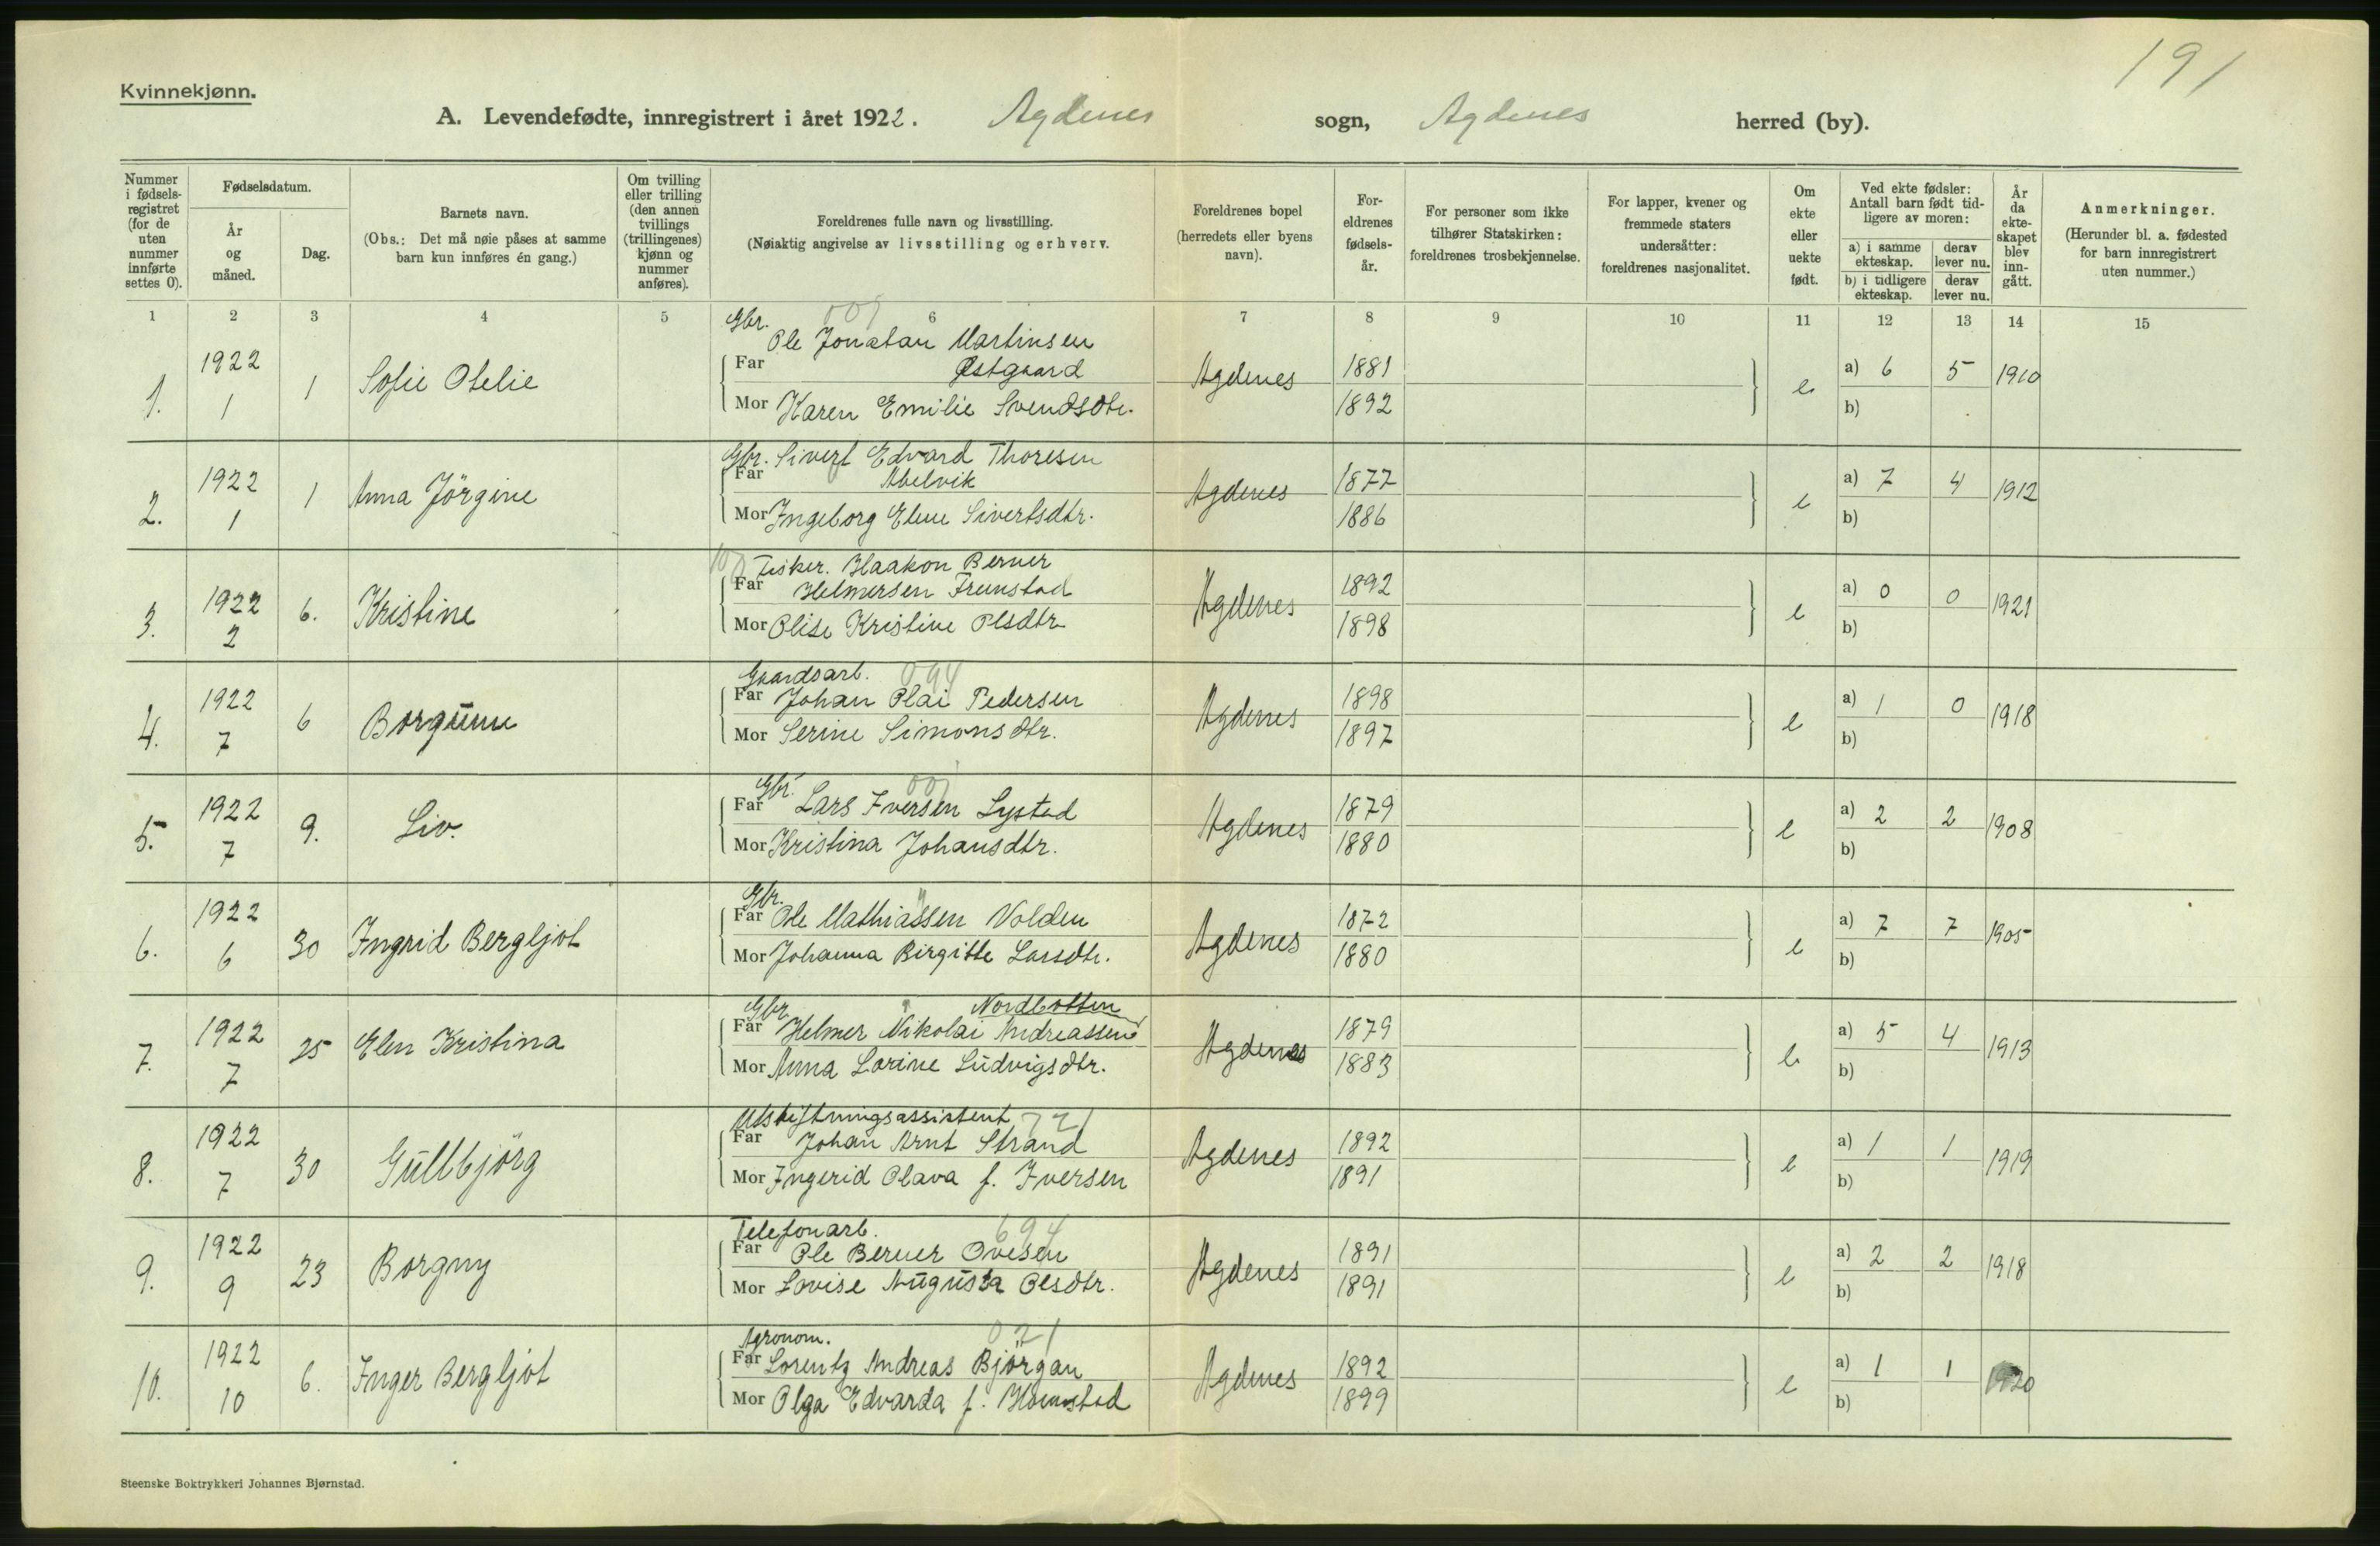 191
Kvinnekjønn.
A. Levendefødte, innregistrert i året 1922. Agdenes sogn, Agdenes herred (by).
Nummer i fødsels-registret (for de uten nummer innførte settes 0).
Fødselsdatum.
År og måned.
Dag.
Barnets navn.
(Obs.: Det må nøie påses at samme barn kun innføres én gang.)
Om tvilling eller trilling (den annen tvillings (trillingenes) kjønn og nummer anføres).
Foreldrenes fulle navn og livsstilling.
(Nøiaktig angivelse av livsstilling og erhverv.
Foreldrenes bopel (herredets eller byens navn).
For-eldrenes fødsels-år.
For personer som ikke tilhører Statskirken: foreldrenes trosbekjennelse.
For lapper, kvener og fremmede staters undersåtter: foreldrenes nasjonalitet.
Om ekte eller uekte født.
Ved ekte fødsler: Antall barn født tid-ligere av moren:
a) i samme ekteskap. derav lever nu.
b) i tidligere ekteskap. derav lever nu.
År da ekte-skapet blev inn-gått.
Anmerkninger.
(Herunder bl. a. fødested for barn innregistrert uten nummer.)
1 2 3 4 5 6 7 8 9 10 11 12 13 14 15
Gbr. 001
Ole Jonatan Martinsen
1. 1922 1 1 Sofie Otelie Far Østgaard Agdenes 1881 e a) 6 5 1910
Mor Karen Emilie Svendsdtr. 1892 b)
Gbr. Sivert Edvard Thoresen
2. 1922 1 1 Anna Jörgine Far Abelvik Agdenes 1877 e a) 7 4 1912
Mor Ingeborg Elene Sivertsdtr. 1886 b)
Fisker. Haakon Berner
3. 1922 2 6. Kristine Far Helmersen Fremstad Agdenes 1892 e a) 0 0 1921
Mor Olise Kristine Olsdtr 1898 b)
Gaardsarb. 094
4. 1922 7 6 Far Johan Olai Pedersen Agdenes 1898 e a) 1 0 1918
Mor Serine Simonsdtr. 1897 b)
Gbr. 001
5. 1922 7 9. Liv. Far Lars Iversen Lystad Agdenes 1879 e a) 2 2 1908
Mor Kristina Johansdtr. 1880 b)
Gbr. "
6. 1922 6 30 Ingrid Bergljot Far Ole Mathiassen Volden Agdenes 1872 e a) 7 7 1905
Mor Johanna Birgitte Larsdtr. 1880 b)
Gbr " Nordbotten
7. 1922 7 25 Elen Kristina Far Helmer Nikolai Andreassen Agdenes 1879 e a) 5 4 1913
Mor Anna Lorine Ludvigsdtr. 1883 b)
Utskiftningsassistent 721
8. 1922 7 30 Gullbjörg Far Johan Arnt Strand Agdenes 1892 e a) 1 1 1919
Mor Ingerid Olava f. Iversen 1891 b)
Telefonarb. 694
9. 1922 9 23 Borgny Far Ole Berner Ovesen Agdenes 1891 e a) 2 2 1918
Mor Lovise Augusta Olsdtr. 1891 b)
Agronom. 021
10. 1922 10 6. Inger Bergljot Far Lorentz Andreas Björgan Agdenes 1892 e a) 1 1 1920
Mor Olga Edvarda f. 1899 b)
Steenske Boktrykkeri Johannes Bjørnstad.